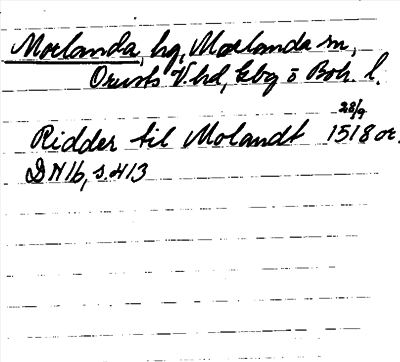 Morlanda, hg, Morlanda sn,
Orusts V hd, Gbg o Boh. l.
28/9
Ridder til Molandt 1518 or.
DN 16, s. 413